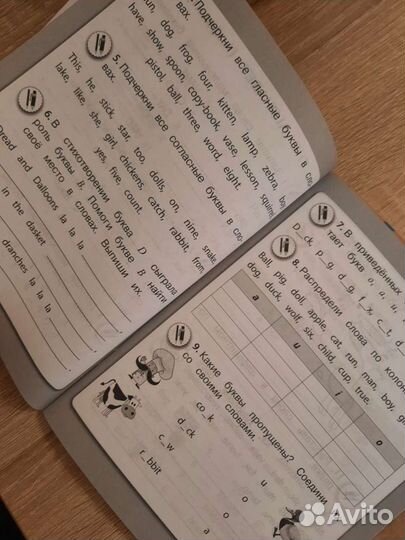 Подчеркни все гласные буквы в сло-
вах.
un, dog, frog, four, kitten, lamp, zebra,
have, show, spoon, copy-book, vase, lesson, squirrel,
pistol, ball, three, word, eight.
5. Подчеркни все согласные буквы в сло-
вах.
This, he, stick, star, too, dolls, on, nine, snake,
lake, like, she, girl, chickens, catch, rabbit, from,
yes, five, count.
6. В стихотворении буква D сыграла
роль буквы B. Помоги букве B найти
своё место в словах. Выпиши их.
Dread and Dalloons la la la
in the dasket
dranches la la la
7. В приведённых
тает букв o, a, u,
D_ck, p_g, d_g, f_x, c_t, d_
8. Распредели слова по колон
Ball, pig, doll, apple, cat, run, man, boy,
dog, duck, wolf, six, child, cup, true.
a
u
i
o
9. Какие буквы пропущены? Соедини
со своими словами.
co_k
d_ck
c_w
r_bbit
u
o
o
a
Avito